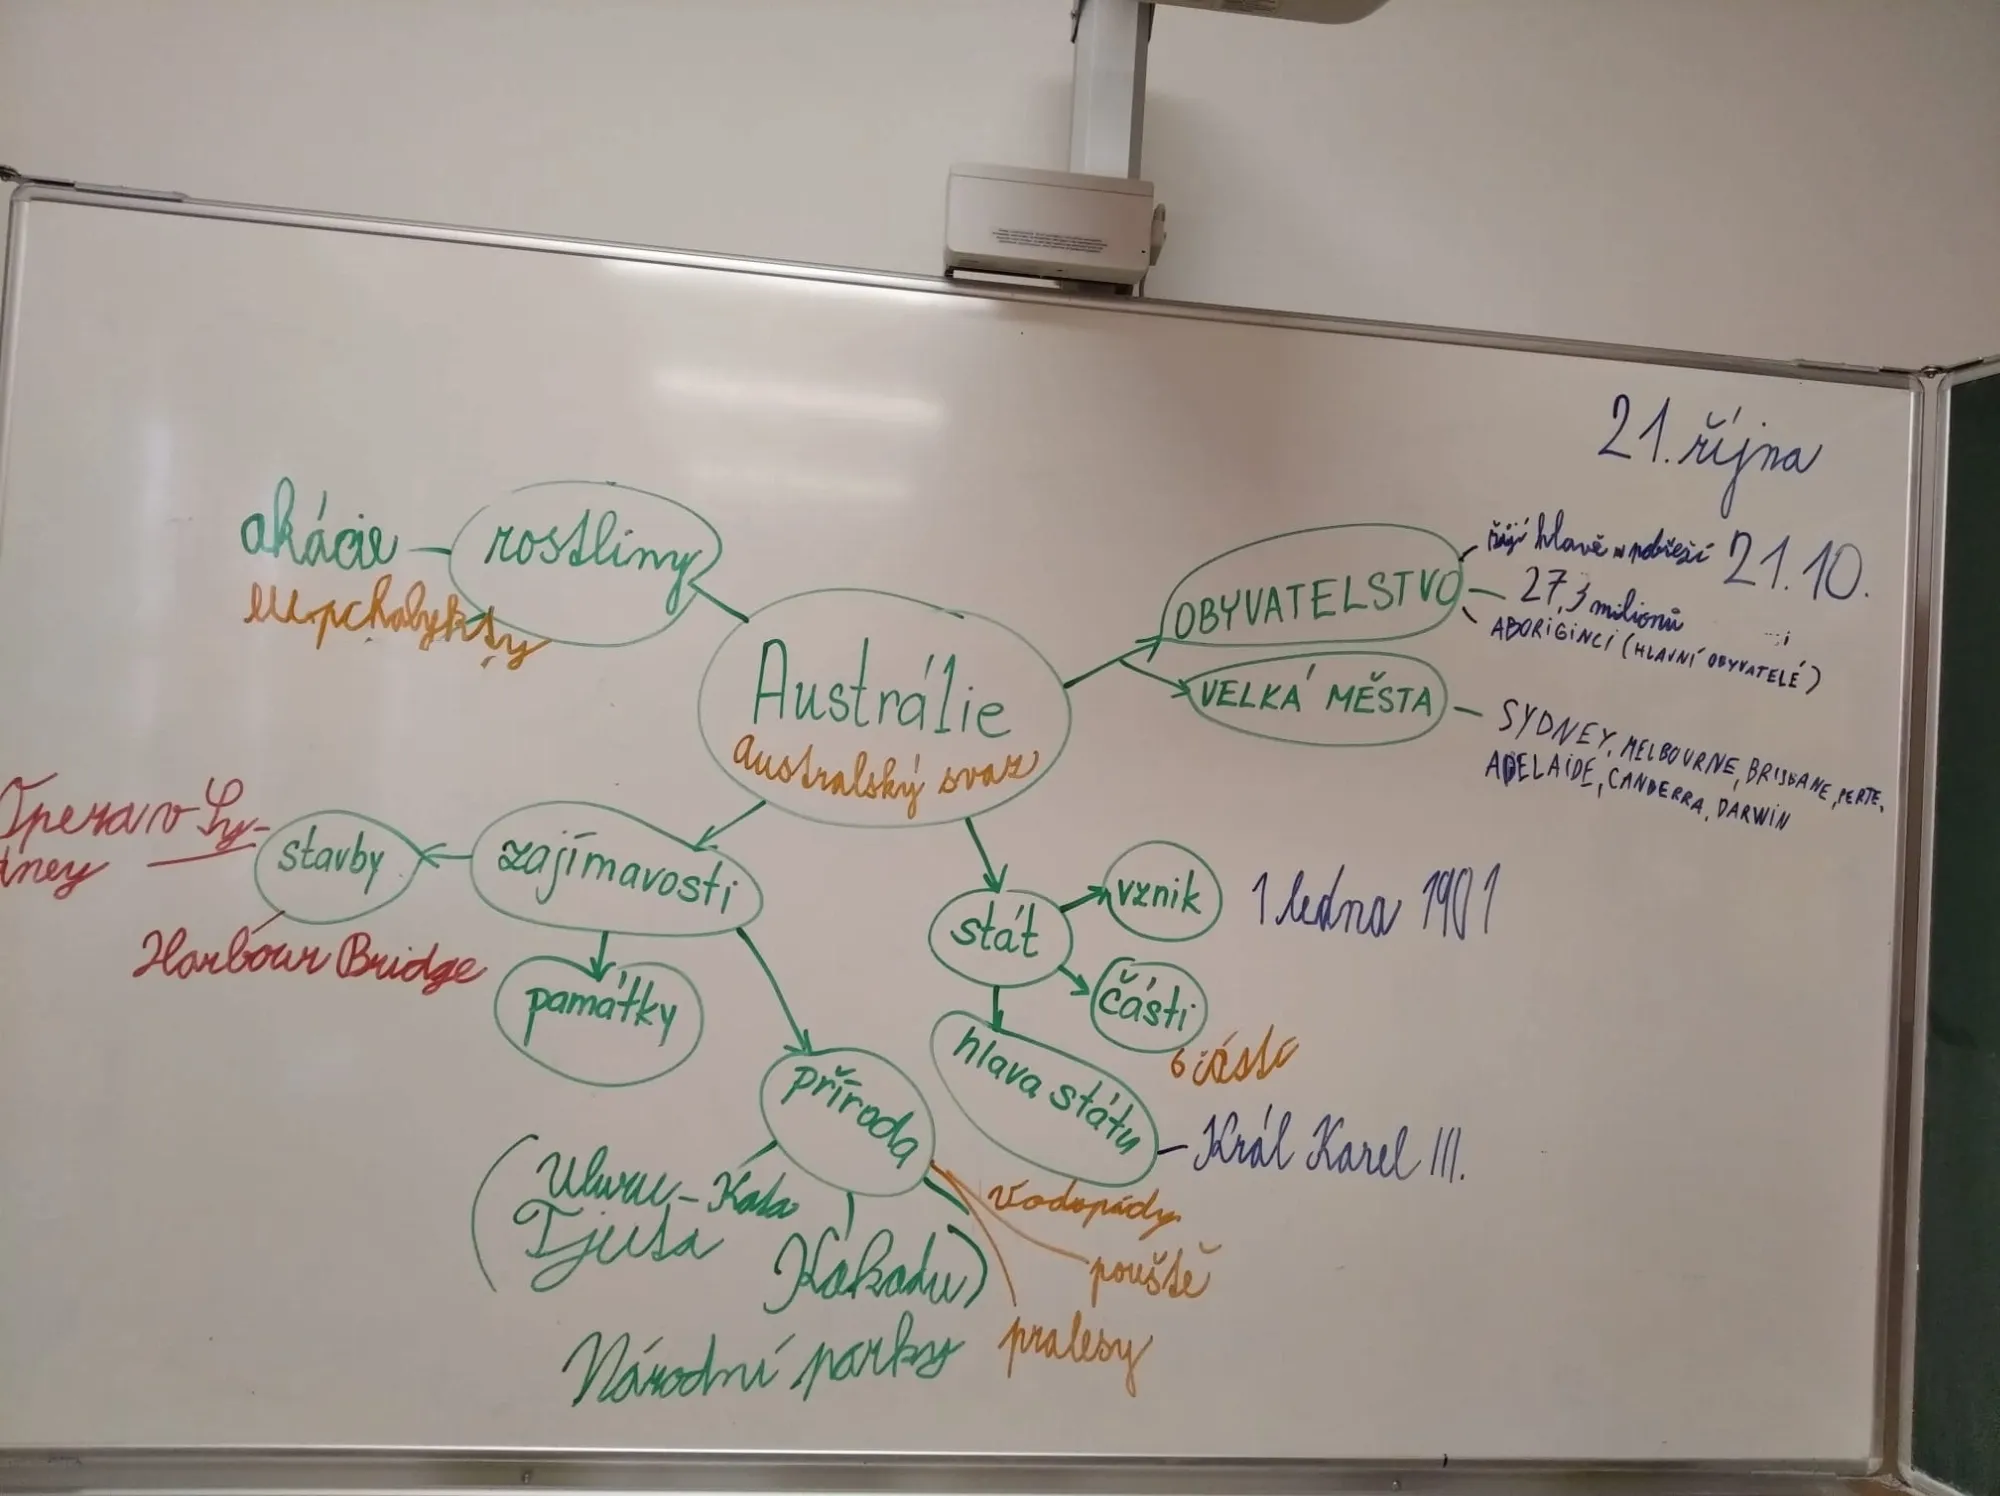 21. října
21.10.
akácie
rostliny
Austrálie
australský svaz
OBYVATELSTVO
žijí hlavě v pobřeží
27,3 milionů
ABORIGINCI (HLAVNÍ OBYVATELÉ)
VELKÁ MĚSTA
SYDNEY, MELBOURNE, BRISBANE, PERTE,
ADELAIDE, CANBERRA, DARWIN
Opera v Sy-
dney
stavby
Harbour Bridge
zajímavosti
památky
příroda
Uluru - Kata
Tjuta
Kakadu)
Národní parky
vodopády
pouště
pralesy
stát
vznik
1 ledna 1901
části
6 části
hlava státu
Král Karel III.